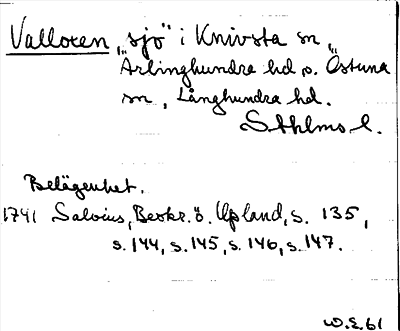 Valloxen „sjö” i Knivsta sn,
Ärlinghundra hd, o. Östuna
sn, Långhundra hd.
Sthlms l.
Belägenhet.
1741 Salvius, Beskr. ö. Upland, s. 135,
s. 144, s. 145, s. 146, s. 147.
W.E. 61